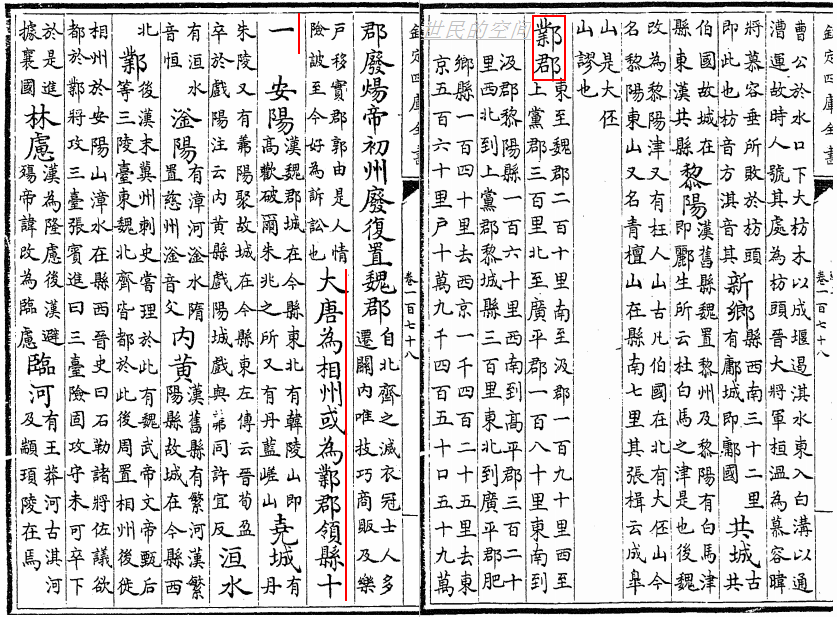 世民的空间
曹公於水口下大枋木以成堰遏淇水東入白溝以通
漕運故時人號其處為枋頭晉大將軍桓溫為慕容暐
將慕容垂所敗於枋頭
即此也枋音方淇音其
新鄉
縣西南三十二里
有鄘城即鄘國
共城
古
共
伯國故城在
縣東漢共縣
黎陽
漢舊縣魏置黎州及黎陽有白馬津
即酈生所云杜白馬之津是也後魏
改為黎陽津又有枉人山古凡伯國在北有大伾山今
名黎陽東山又名青檀山在縣南七里其張楫云成皋
山是大伾
山謬也
鄴郡
東至魏郡二百十里南至汲郡一百九十里西至
上黨郡三百里北至廣平郡一百八十里東南到
汲郡黎陽縣一百六十里西南到高平郡三百二十
里西北到上黨郡黎城縣三百里東北到廣平郡肥
鄉縣一百四十里去西京一千四百二十五里去東
京五百六十里戶十萬九千四百五十口五十九萬
卷一百七十八
郡廢煬帝初州廢復置魏郡
自北齊之滅衣冠士人多
遷關內唯技巧商販及樂
戶移實郡郭由是人情
險詖至今好為訴訟也
大唐為相州或為鄴郡領縣十
一
安陽
漢魏郡城在今縣東北有韓陵山即
高歡破爾朱兆之所又有丹藍嵯山
堯城
有
丹
朱陵又有羛陽聚故城在今縣東左傳云晉荀盈
卒於戲陽注云內黃縣戲陽城戲與羛同許宜反
洹水
有洹水
音恒
滏陽
有漳河滏水隋
置慈州滏音父
內黃
漢舊縣有繁河漢繁
陽縣故城在今縣西
北
鄴
後漢末冀州刺史嘗理於此有魏武帝文帝甄后
等三陵臺東魏北齊皆都於此後周置相州後徙
相州於安陽山漳水在縣西晉史曰石勒諸將佐議欲
都於鄴將攻三臺張賓進曰三臺險固攻守未可卒下
於是進
據襄國
林慮
漢為隆慮後漢避
殤帝諱改為臨慮
臨河
有王莽河古淇河
及顓頊陵在馬